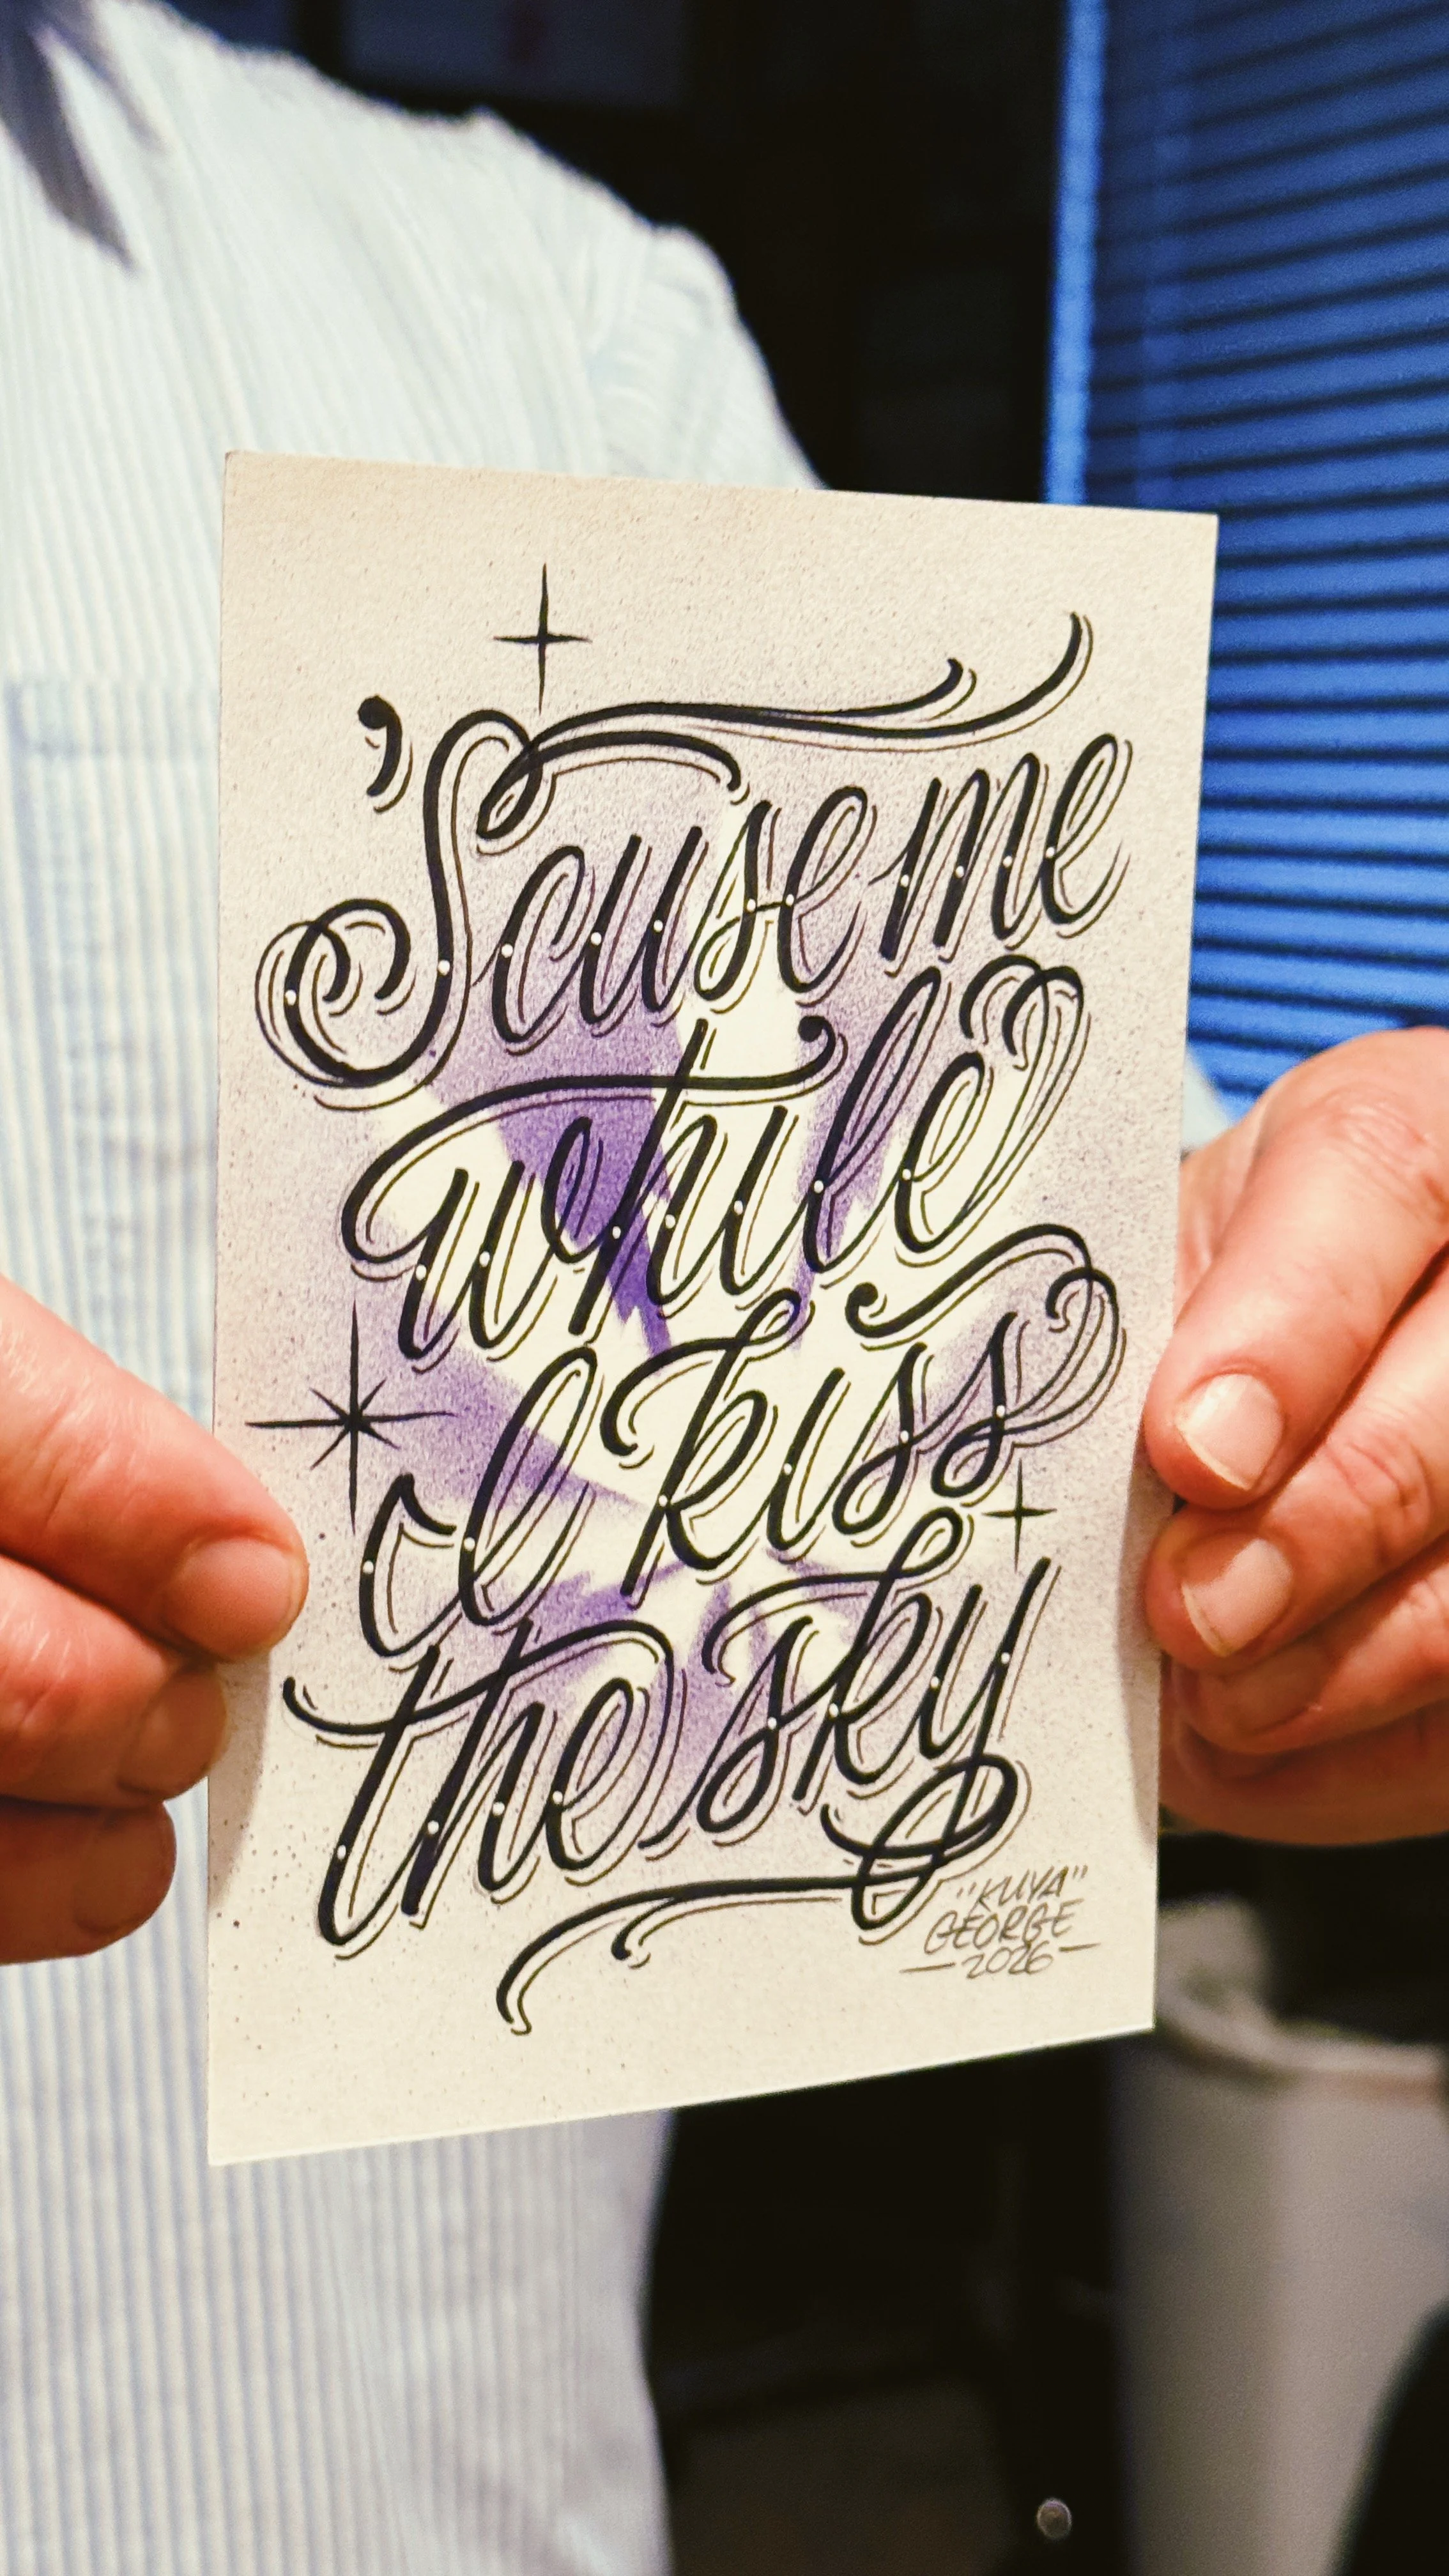 'Scuse me
while
I kiss
the sky
"KUYA"
GEORGE
—2026—